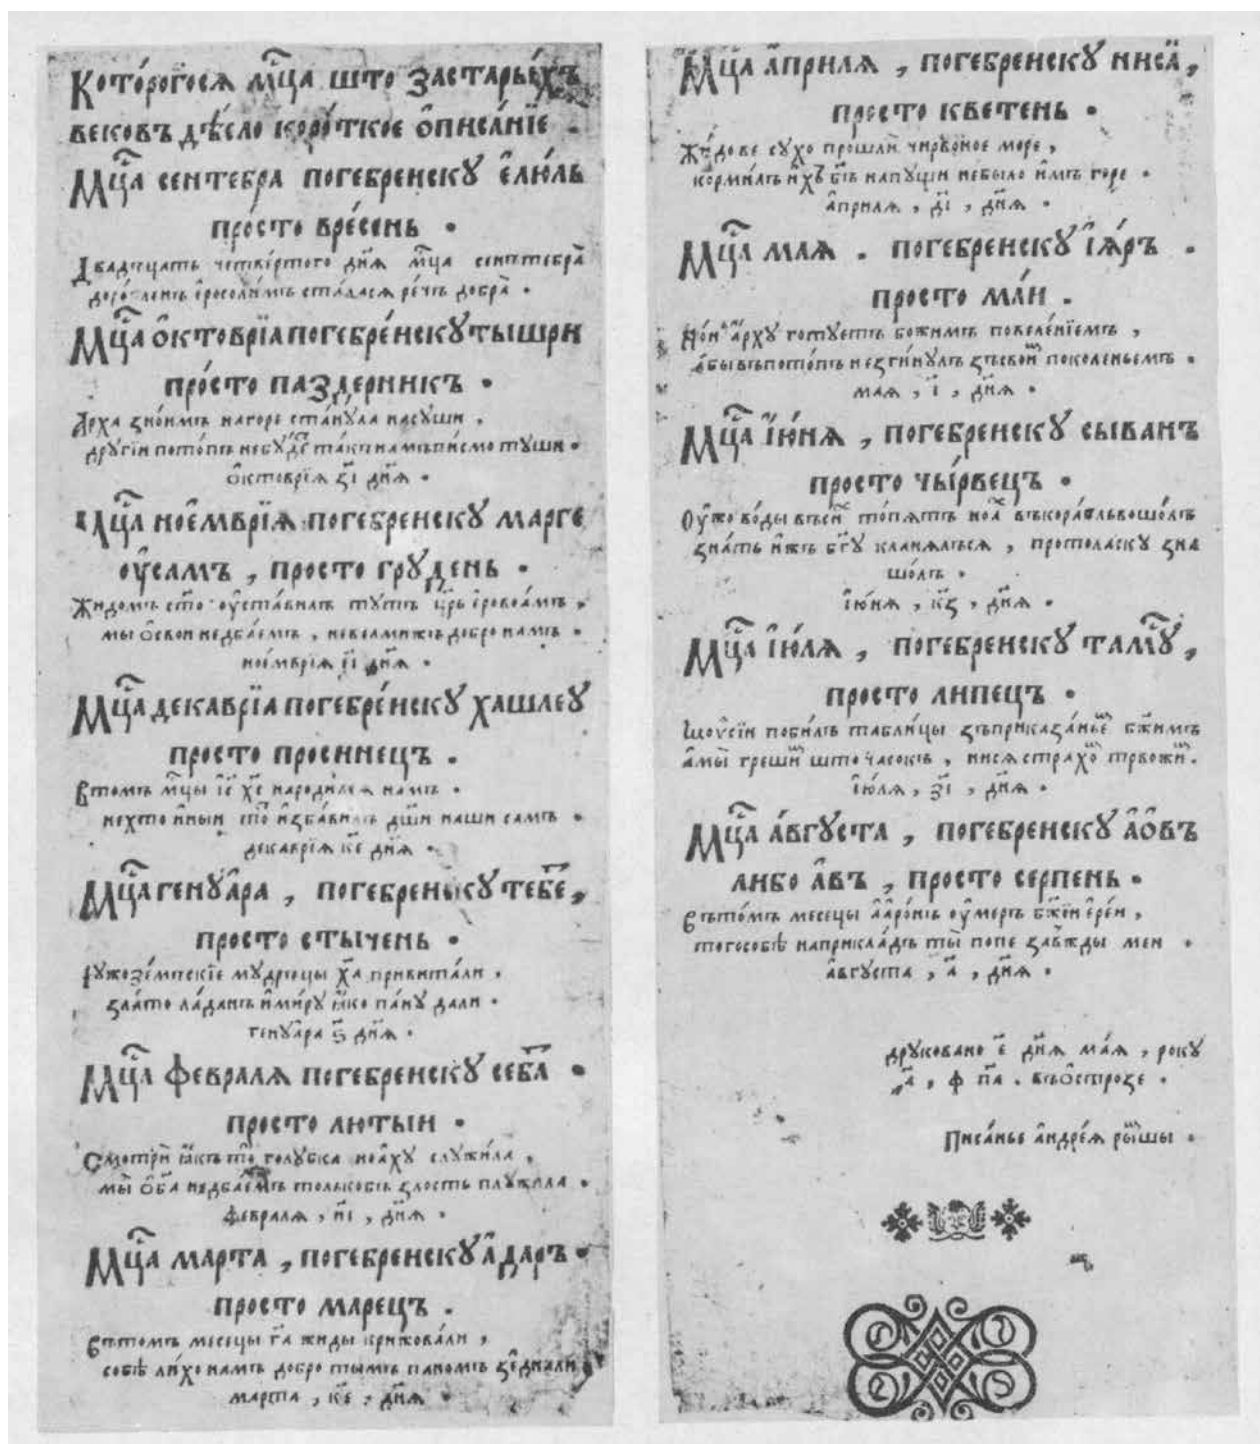 Кото́рогося мц҃а што застары́хъ
вековъ дѣѣло коро́ткое ѻписа́нїе .
Мц҃а сентебра погебренску єлю́ль
про́сто вре́сень .
Двадцать четве́ртого дн҃я мц҃а сенътебра̀
єросоли́мъ ста́лася ре́чъ добра̀ .
Мц҃а ѻктоврїа погебре́нску тышри
про́сто паздерникъ .
Арха зно́имъ нагоре ста́нула насуши ,
другїи пото́пъ небу́де та́къ намъ пи́смо туши .
ѻктоврїя зі҃ дн҃я .
Мц҃а ноємврїя погебренску марге
ѹсамъ , просто грудень .
Жидомъ ѹста́вилъ тутъ цр҃ь єровоа́мъ ,
мы ѻсвои недба́емъ , добро намъ .
ноє́мврїя дн҃я .
Мц҃а декаврїа погебре́нску хашлеу
просто просинецъ .
Втомъ мц҃ы іс҃ хс҃ народился намъ .
нехто и́ныи изба́вилъ дш҃и наши самъ .
декаврїя ке҃ дн҃я .
Мц҃а генуа̂ра , погебреньску тебе ,
просто стычень .
Чужозе́мские мудрецы ха҃ привита́ли ,
зла́то ла́данъ и̂ми́ру я́ко па́ну дали .
генуа̂ра ѕ҃ дн҃я .
Мц҃а февраля погебренску себа
просто лютыи .
Смотрѝ я́къ голубка ноа́ху служи́ла ,
мы̀ недба́емъ злость плужила .
февраля , иі҃ , дн҃я .
Мц҃а марта , погебренску а̂даръ .
просто марецъ .
Вътомъ месецы га҃ жиды крижова́ли ,
собѣ ли́хо намъ добро тымъ паномъ зе̂днали
марта , ке҃ , дн҃я .
Мц҃а а̂приля , погебренску ниса̀ ,
просто кветень .
Жи́дове сухо прошлѝ чирво́ное море ,
корми́лъ и́хъ бг҃ъ напущи небыло и̂мъ горе .
а̂приля , ді҃ , дн҃я .
Мц҃а мая . погебренску і̂я́ръ .
просто маи .
Но́и а̂рху готуетъ божимъ повеле́нїемъ ,
а́бывъпото́пъ незгинулъ зъсвои̂ поколеньемъ .
мая , і҃ , дн҃я .
Мц҃а і̂ю́ня , погебренску сыванъ
просто чы́рвецъ .
Оу́жо во́ды въсѣ̀ то́пятъ ноа̀ въкора́бльвошо́лъ
зна́ть и́жъ бг҃у кланялъся , простоласку зна
шо́лъ .
і̂ю́ня , кз҃ , дн҃я .
Мц҃а і̂ю́ля , погебренску таму̀ ,
просто липецъ .
Мои̂сїи поби́лъ табли́цы зъприказа́нье бж҃имъ
а̂мы̀ греши̂ што часокъ , нися страхо̂ трвожи̂ .
і̂ю́ля , зі҃ , дн҃я .
Мц҃а а́вгуста , погебренску а̂ѻвъ
либо а̂въ , просто серпень .
Вътомъ месецы а̂аро́нъ ѹмеръ бж҃їи є̂ре́и ,
тогособѣ наприкла́дъ ты̀ попе за́вжды меи .
а̂вгуста , а҃ , дн҃я .
друковано е҃ дн҃я ма́я , року
҂а҃ , ф п҃а . въѻстрозе .
Писа́нье а̂ндре́я ры̂мшы .